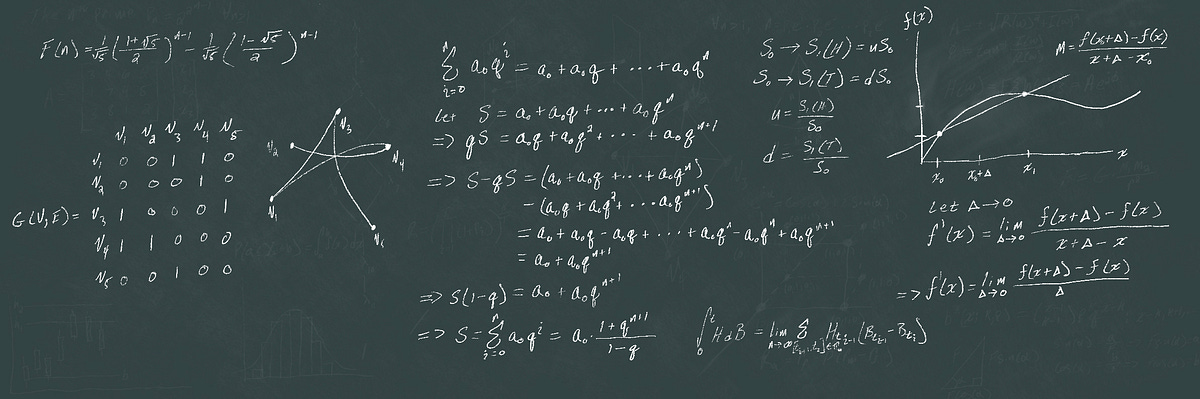 F(n) = 1/√5 ((1+√5)/2)^(n-1) - 1/√5 ((1-√5)/2)^(n-1)
v₁ v₂ v₃ v₄ v₅
v₁ 0 0 1 1 0
v₂ 0 0 0 1 0
G(V,E) = v₃ 1 0 0 0 1
v₄ 1 1 0 0 0
v₅ 0 0 1 0 0
v₃
v₂
v₄
v₁
∑_{i=0}^{n} a₀qⁱ = a₀ + a₀q + ··· + a₀qⁿ
Let S = a₀ + a₀q + ··· + a₀qⁿ
=> qS = a₀q + a₀q² + ··· + a₀qⁿ⁺¹
=> S-qS = (a₀ + a₀q + ··· + a₀qⁿ)
- (a₀q + a₀q² + ··· a₀qⁿ⁺¹)
= a₀ + a₀q - a₀q + ··· + a₀qⁿ - a₀qⁿ + a₀qⁿ⁺¹
= a₀ + a₀qⁿ⁺¹
=> S(1-q) = a₀ + a₀qⁿ⁺¹
=> S = ∑_{i=0}^{n} a₀qⁱ = a₀ · (1+qⁿ⁺¹)/(1-q)
S₀ → S₁(H) = uS₀
S₀ → S₁(T) = dS₀
u = S₁(H)/S₀
d = S₁(T)/S₀
∫₀ᵗ H dB = lim_{n→∞} ∑ H_{t_{i-1}} (B_{t_{i-1}} - B_{t_i})
f(x)
M = (f(x₀+Δ) - f(x))/(x+Δ-x₀)
x
x₀ x₀+Δ x₁
Let Δ→0
f'(x) = lim_{Δ→0} (f(x+Δ) - f(x))/(x+Δ-x)
=> f'(x) = lim_{Δ→0} (f(x+Δ) - f(x))/Δ